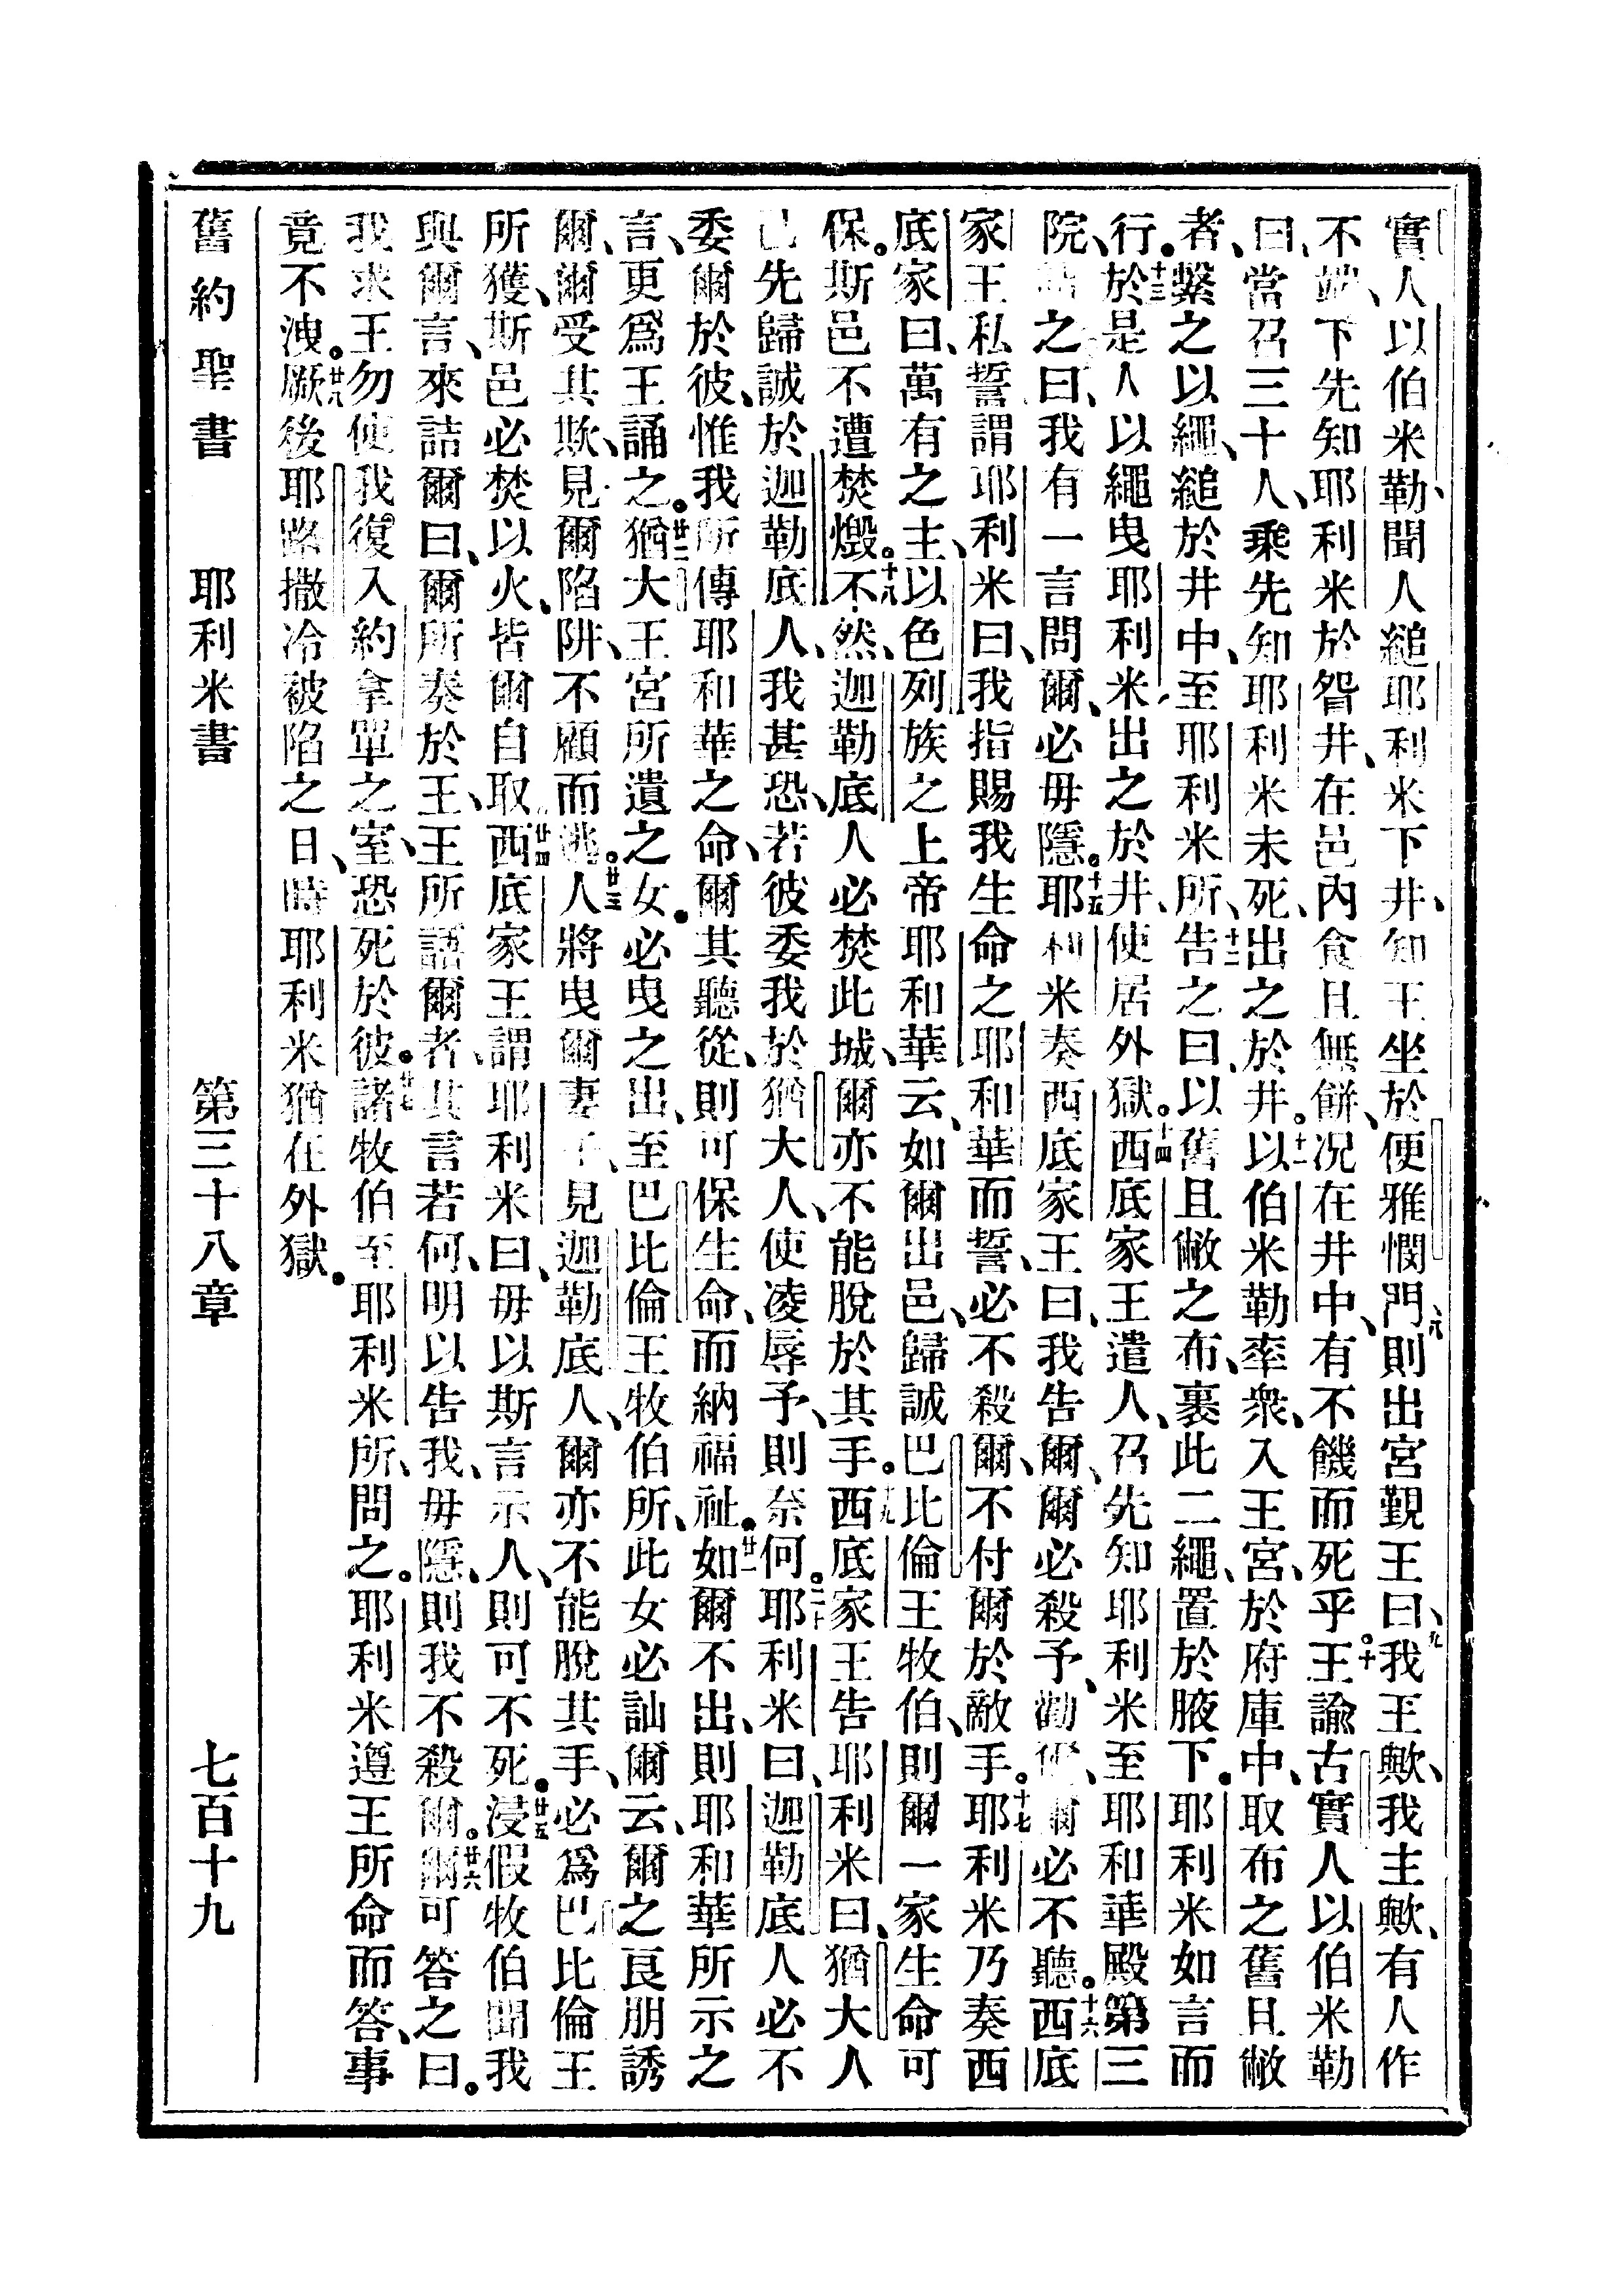 實人以伯米勒、聞人縋耶利米下井、知王坐於便雅憫門、八則出宮覲王曰、九我王歟、我主歟、有人作
不端、下先知耶利米於眢井、在邑內食且無餅、况在井中、有不饑而死乎。十王諭古實人以伯米勒
曰、當召三十人、乘先知耶利米未死、出之於井。十一以伯米勒率衆、入王宮、於府庫中、取布之舊且敝
者、繫之以繩、縋於井中、至耶利米所、十二告之曰、以舊且敝之布、裹此二繩、置於腋下。耶利米如言而
行。十三於是人以繩曳耶利米出之於井、使居外獄。十四西底家王遣人、召先知耶利米至耶和華殿第三
院、詰之曰、我有一言問爾、必毋隱。十五耶利米奏西底家王曰、我告爾、爾必殺予、勸爾、爾必不聽。十六西底
家王私誓謂耶利米曰、我指賜我生命之耶和華而誓、必不殺爾、不付爾於敵手。十七耶利米乃奏西
底家曰、萬有之主、以色列族之上帝耶和華云、如爾出邑、歸誠巴比倫王牧伯、則爾一家生命可
保。斯邑不遭焚燬。十八不然、迦勒底人必焚此城、爾亦不能脫於其手。十九西底家王告耶利米曰、猶大人
已先歸誠於迦勒底人、我甚恐、若彼委我於猶大人、使凌辱予、則奈何。二十耶利米曰、迦勒底人必不
委爾於彼、惟我所傳耶和華之命、爾其聽從、則可保生命、而納福祉。廿一如爾不出、則耶和華所示之
言、更爲王誦之。廿二猶大王宮所遺之女。必曳之出、至巴比倫王牧伯所、此女必訕爾云、爾之良朋誘
爾、爾受其欺、見爾陷阱、不顧而逃。廿三人將曳爾妻子、見迦勒底人、爾亦不能脫其手、必爲巴比倫王
所獲、斯邑必焚以火、皆爾自取、廿四西底家王謂耶利米曰、毋以斯言示人、則可不死。廿五浸假牧伯聞我
與爾言、來詰爾曰、爾所奏於王、王所語爾者、其言若何、明以告我、毋隱、則我不殺爾。廿六爾可答之曰。
我求王勿使我復入約拿單之室、恐死於彼。廿七諸牧伯至耶利米所、問之。耶利米遵王所命而答、事
竟不洩。廿八厥後耶路撒冷被陷之日、時耶利米猶在外獄。
舊約聖書 耶利米書 第三十八章 七百十九